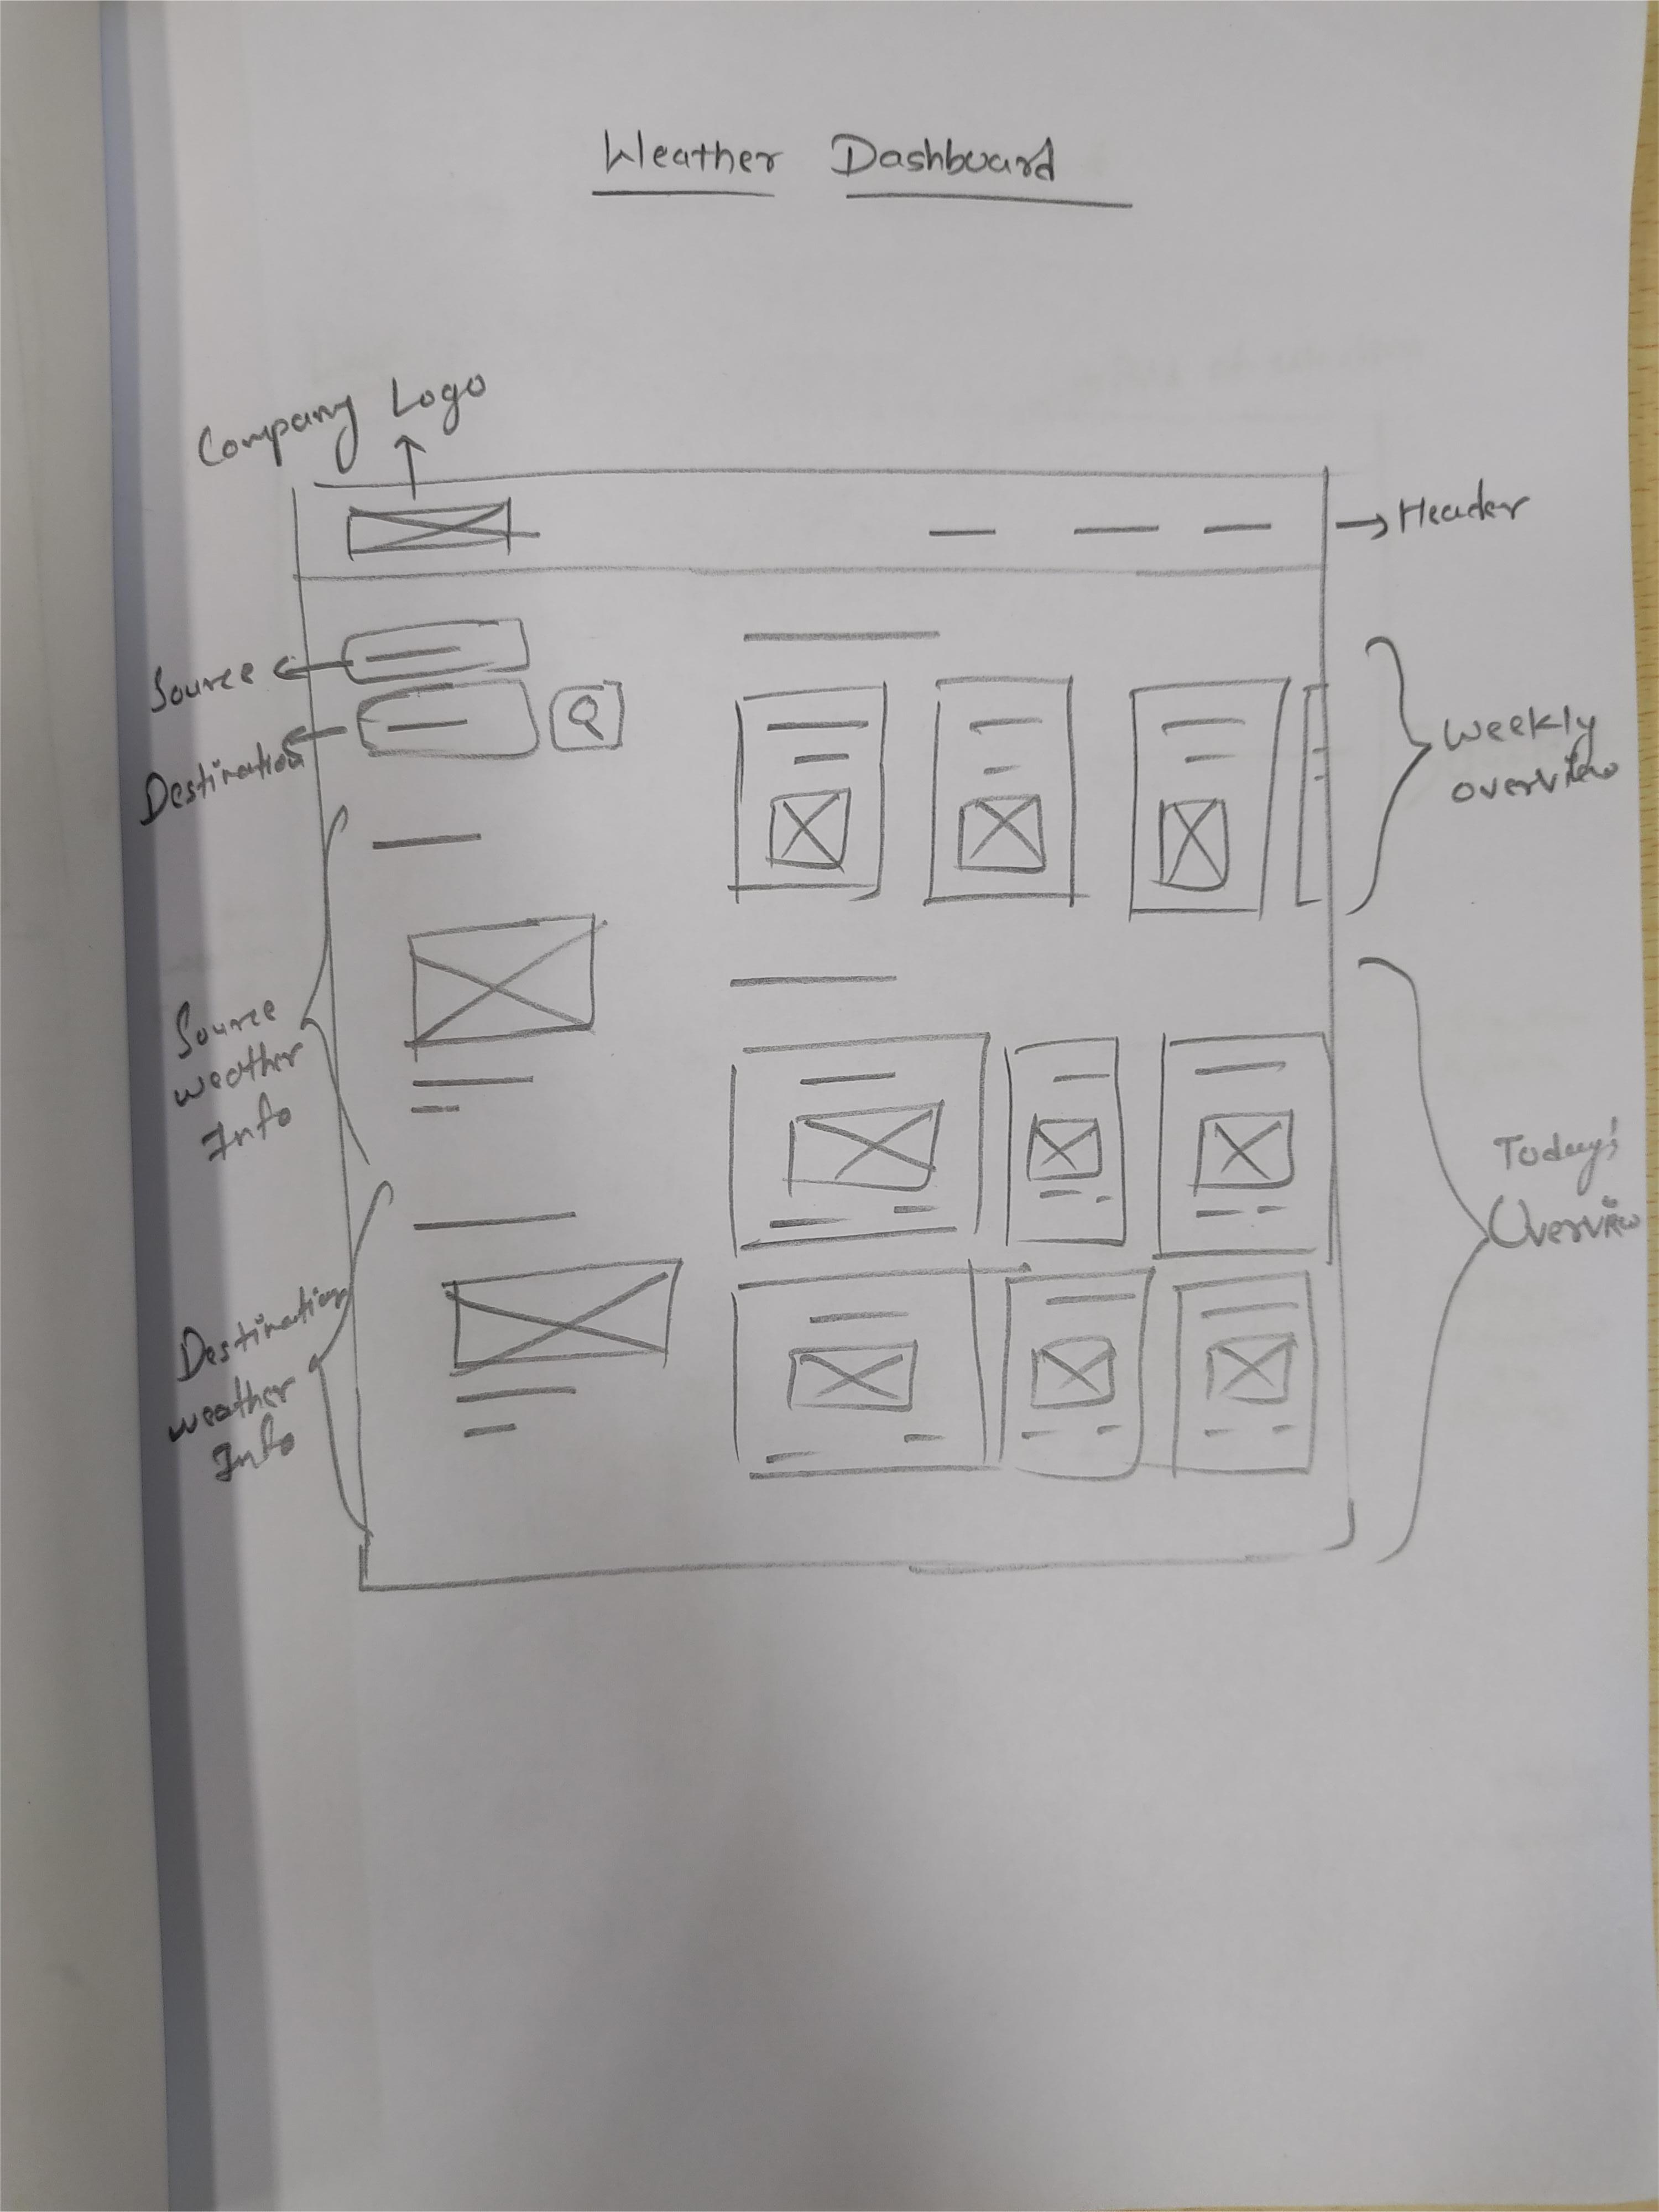 Weather Dashboard
Company Logo
Header
Source
Destination
Weekly
overview
Source
weather
Info
Today's
Overview
Destination
weather
Info